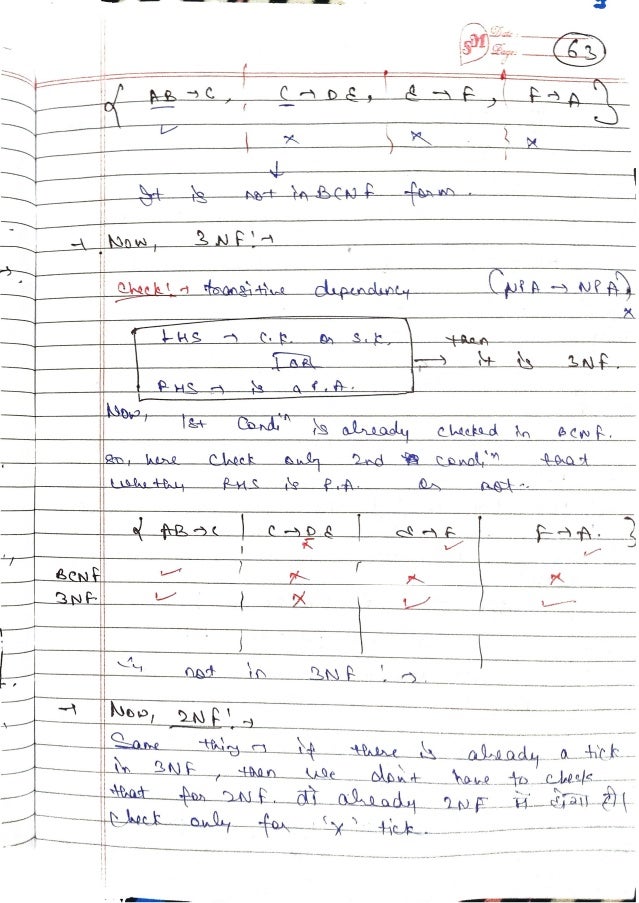 SM Date
Page 63
{ AB → C, C → DE, E → F, F → A }
✓ x x x
↓
It is not in BCNF form.
→ Now, 3NF:→
Check:→ transitive dependency (NPA → NPA) x
LHS → C.K. or S.K.
OR
RHS → is a P.A.
then
⟹ it is 3NF.
Now, 1st Condiⁿ is already checked in BCNF.
so, here Check only 2nd condiⁿ that
whethy RHS is P.A. or not.
{ AB → C | C → DE | E → F | F → A. }
x ✓ ✓
BCNF ✓ x x x
3NF ✓ x ✓ ✓
not in 3NF :→
→ Now, 2NF:→
Same thing → if there is already a tick
in 3NF, then we don't have to check
that for 2NF. तो already 2NF में होगा ही।
Check only for 'x' tick.